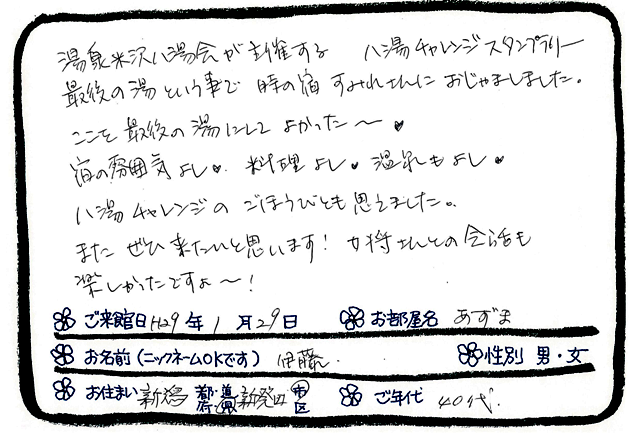 温泉米沢八湯会が主催する 八湯チャレンジスタンプラリー
最後の湯という事で 時の宿 すみれさんに おじゃましました。
ここを最後の湯にして よかった〜♥
宿の雰囲気よし♥ 料理よし♥ 温泉もよし♥
八湯チャレンジの ごほうびとも思えました。
また ぜひ 来たいと思います! 女将さんとの会話も
楽しかったですょ〜!
ご来館日 H29年 1月29日 お部屋名 あずま
お名前(ニックネームOKです) 伊藤 性別 男・女
お住まい 新潟 都道府県 新発田 市区 ご年代 40代